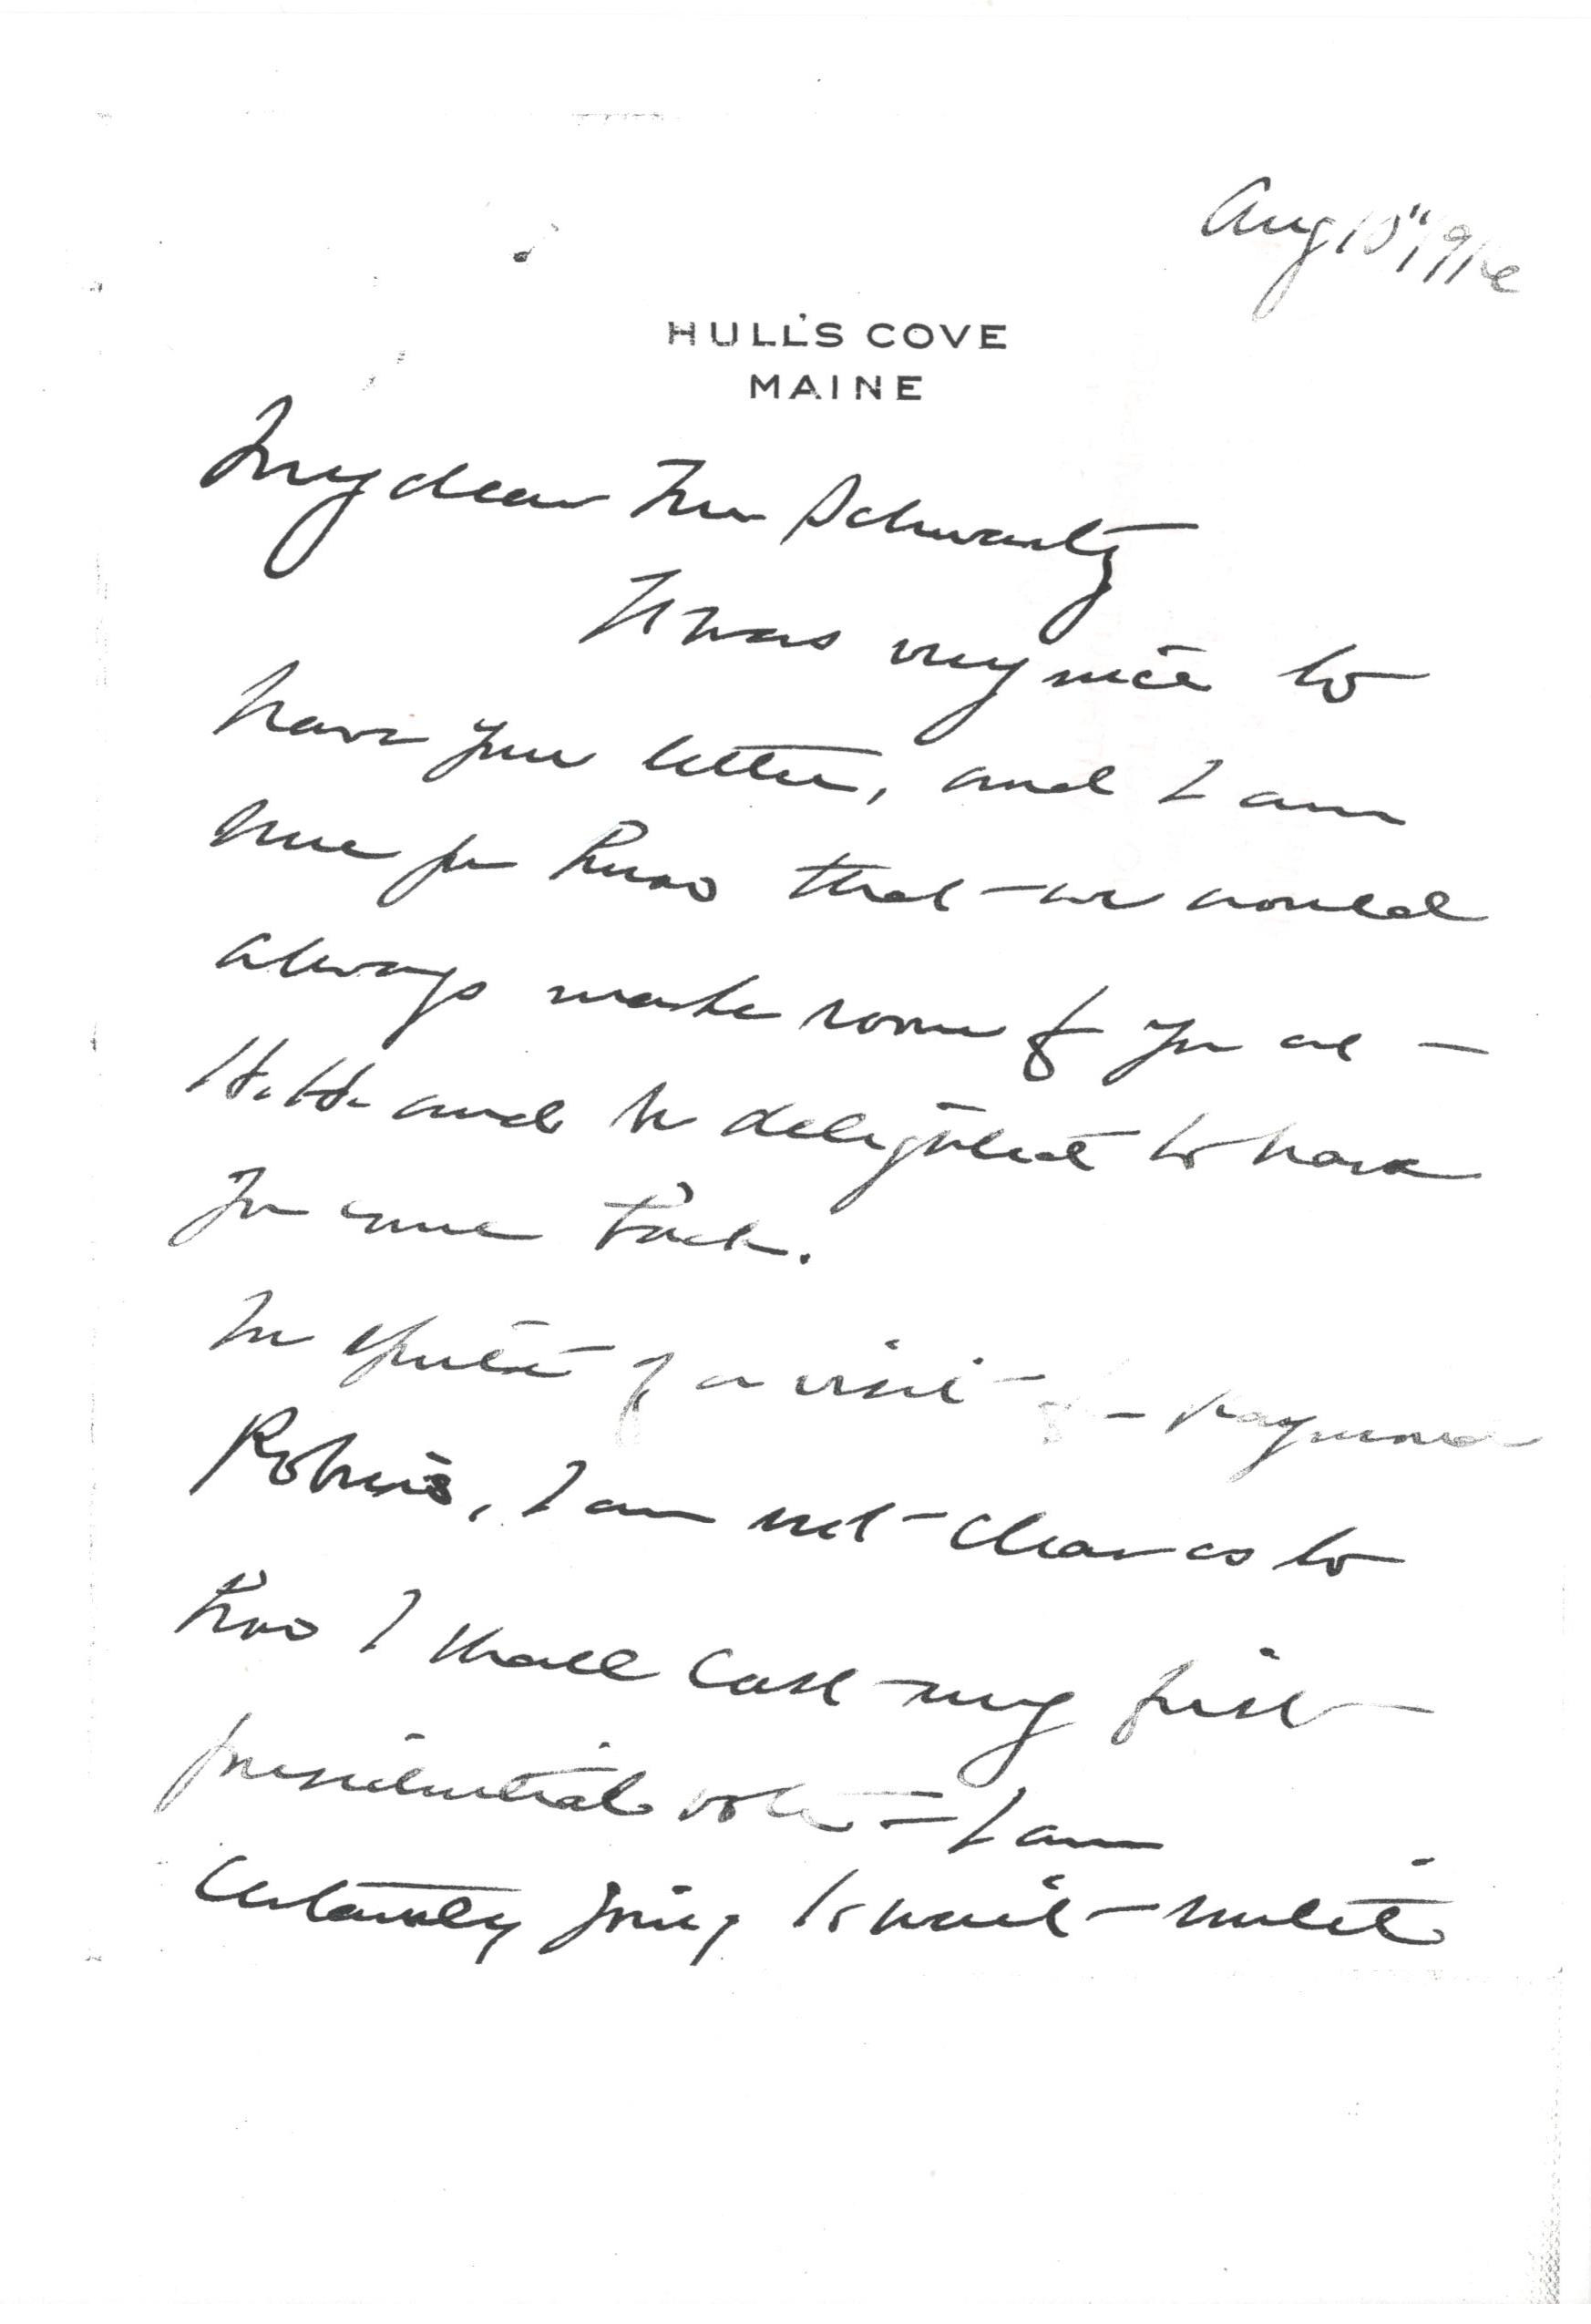 Aug 10" 1916
HULL'S COVE
MAINE
My dear Mr Schwartz
It was very nice to
have your letter, and I am
sure you know that we would
always make room for you at
H. H. and be delighted to have
you come back.
In spite of a visit from Raymond
Robins, I am not clear as to
how I shall cast my first
presidential vote = I am
certainly going to wait until